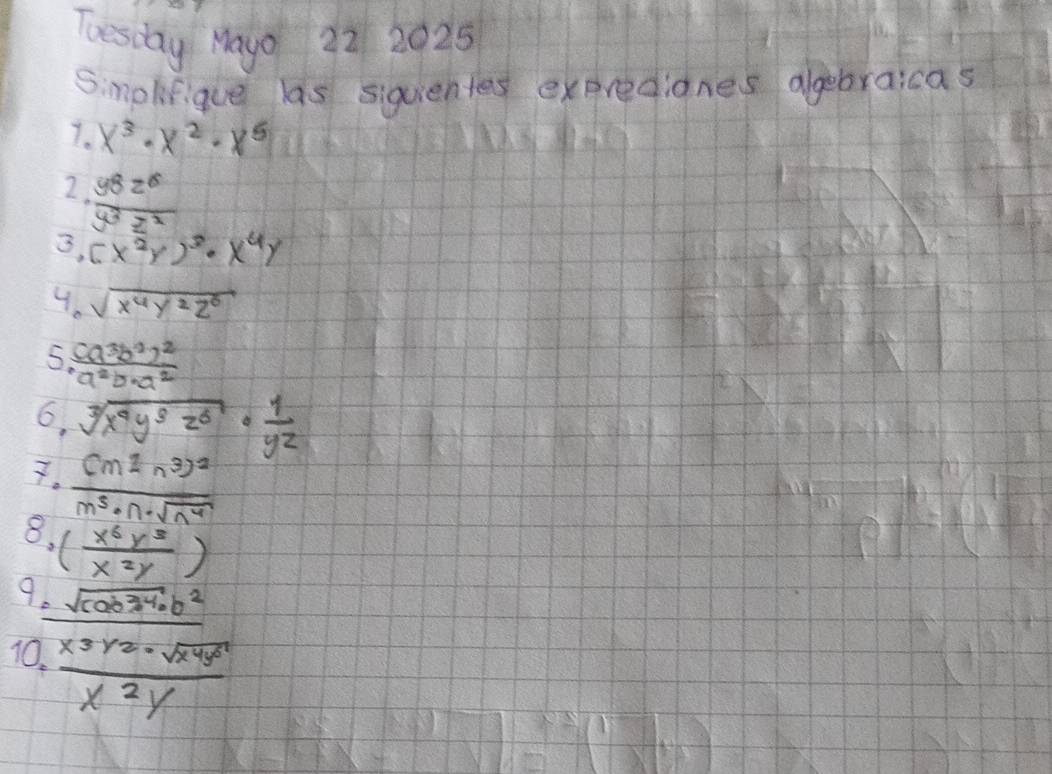 Tuesday Mayo 22 2025
Simplifique las siguientes exprediones algebraicas
1. x³ · x² · x⁵
2. y8 z⁶ / y³ z²
3. (x²y)³ · x⁴y
4. √(x⁴y²z⁶)
5. (a³b²)² / a²b·a²
6. ∛(x⁹y³z⁶) · 1/yz
7. (m²n³)² / m³·n·√(n⁴)
8. (x⁶y³ / x²y)
9. √(ab²)⁴·b²
10. x3y2·√(x⁴y⁶) / x²y